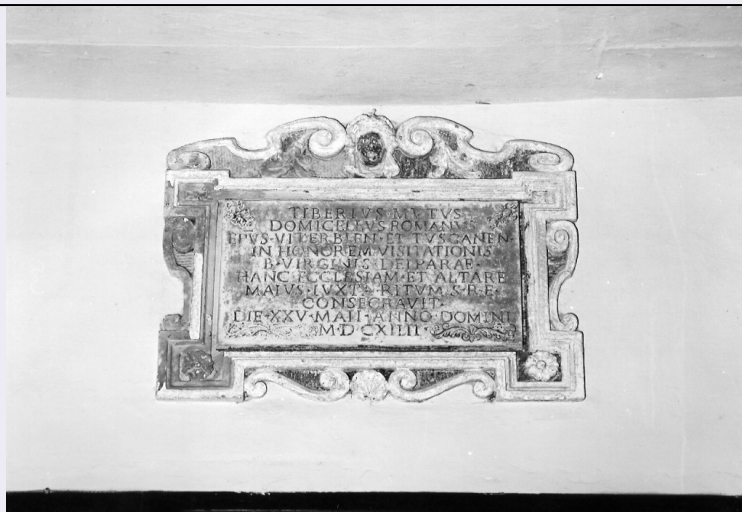 TIBERIVS MVTVS
DOMICELLVS ROMANVS
EPVS·VITERBIEN·ET TVSCANEN·
IN HONOREM VISITATIONIS
B·VIRGINIS DEIPARAE
HANC ECCLESIAM·ET ALTARE
MAIVS·IVXTA RITVM S·R·E·
CONSECRAVIT·
DIE·XXV·MAII·ANNO·DOMINI
M·D·CXIIII·